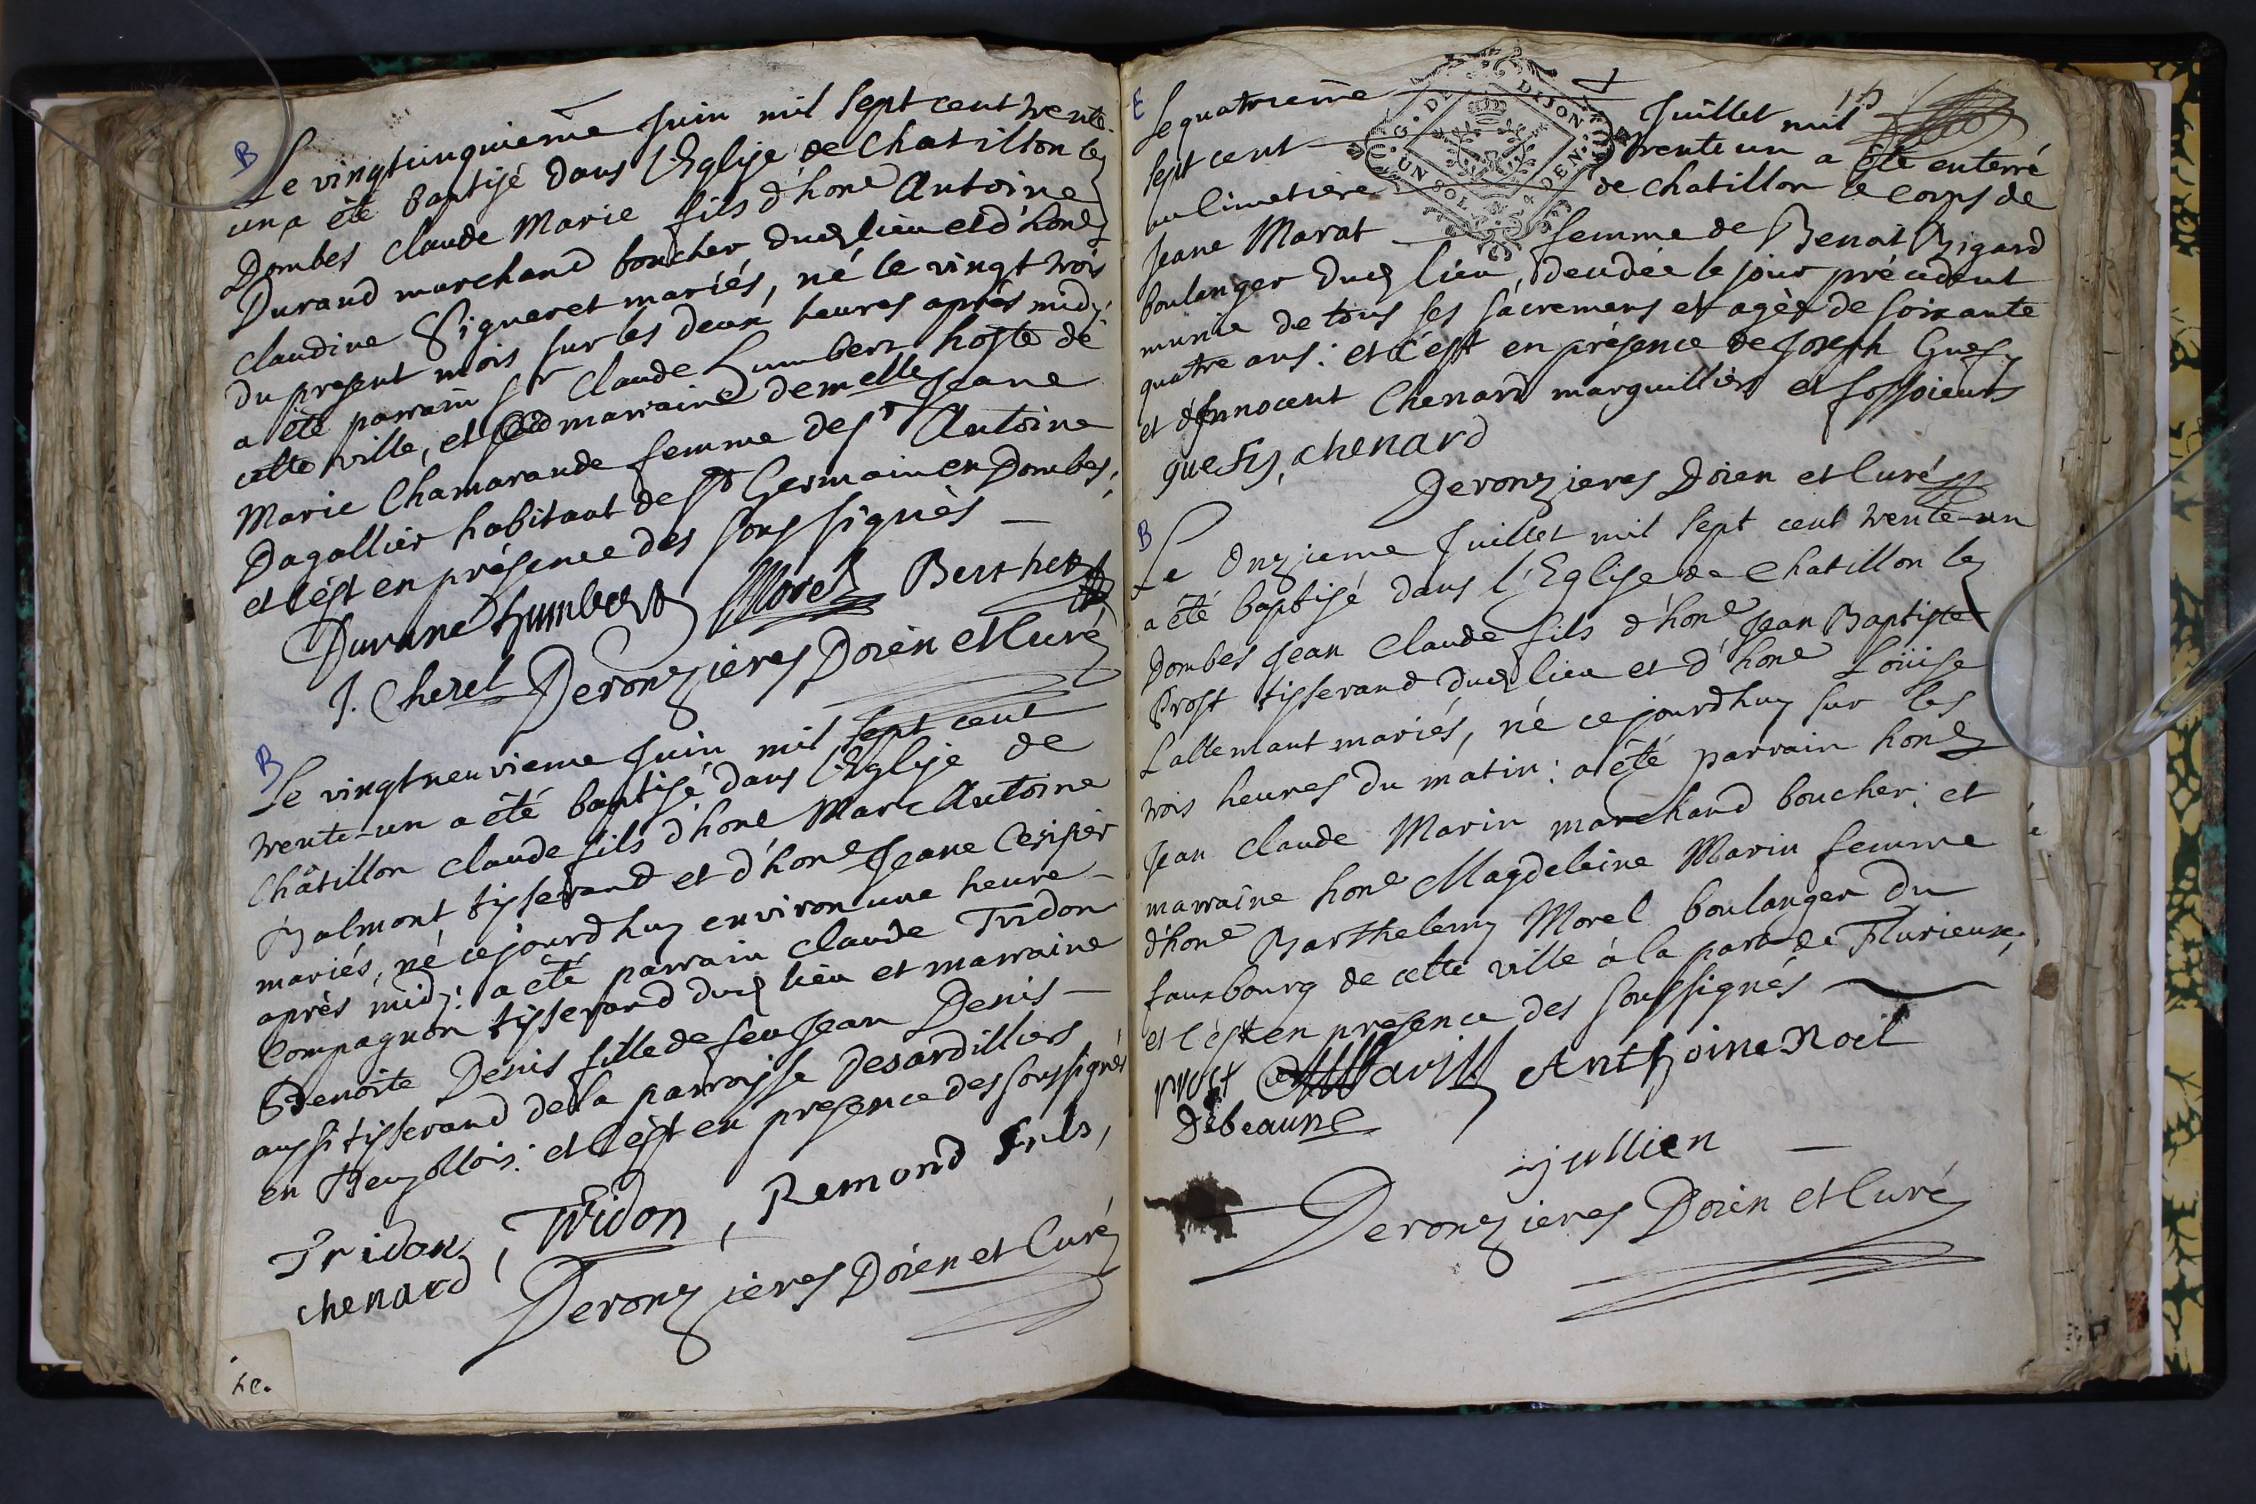 B
Le vingtcinquieme Juin mil sept cent trente
un a été baptisé dans l'Eglise de Chatillon les
Dombes Claude Marie fils d'hone Antoine
Durand marchand boucher dud lieu et d'hone
Claudine Vigneret mariés, né le vingt trois
du present mois sur les deux heures après midy
a été parrain sr Claude Humbert hoste de
cette ville, et marraine demelle Jeane
Marie Chamarande femme de sr Antoine
Dagallier habitant de St Germain en Dombes;
et c'est en présence des soussignés
Durand Humbert Morel Berthet
J. Cheret Deronzieres Doien et Curé
B
Le vingtneuvieme Juin mil sept cent
trente-un a été baptisé dans l'Eglise de
Châtillon Claude fils d'hone Marc Antoine
Balmont tisserand et d'hone Jeane Cesisier
mariés, né cejourd'huy environ une heure
après midy: a été parrain Claude Tridon
Compagnon tisserand dud lieu et marraine
Benoite Denis fille de feu Jean Denis
aussi tisserand de la parroisse Desardilliers
en Beujollois: et c'est en presence des soussignés
Tridon, Tridon, Remond fils,
chenard
Deronzieres Doien et Curé
E
Le quatrieme Juillet mil
sept cent trente un a été enterré
au Cimetière de Chatillon le corps de
Jeane Marat femme de Benoit Bigard
boulanger dud lieu, decedée le jour précedent
munie de tous ses sacremens et agée de soixante
quatre ans: et c'est en présence de Joseph Guefy
et d'Innocent Chenard marguilliers et fossoieurs
guefy, chenard
Deronzieres Doien et Curé
G. DE DIJON
UN SOL 4 DEN.
B
Le Onzieme Juillet mil sept cent trente-un
a été baptisé dans l'Eglise de Chatillon les
Dombes Jean Claude fils d'hone Jean Baptiste
Prost tisserand dud lieu et d'hone Loüise
Lallemant mariés, né cejourdhuy sur les
trois heures du matin: a été parrain hone
Jean Claude Marin marchand boucher: et
marraine hone Magdeleine Marin femme
d'hone Barthelemy Morel boulanger du
fauxbourg de cette ville à la porte de Flurieux;
et c'est en presence des soussignés
prost Marin Anthoine Noel
Debeaune
jullien
Deronzieres Doien et Curé